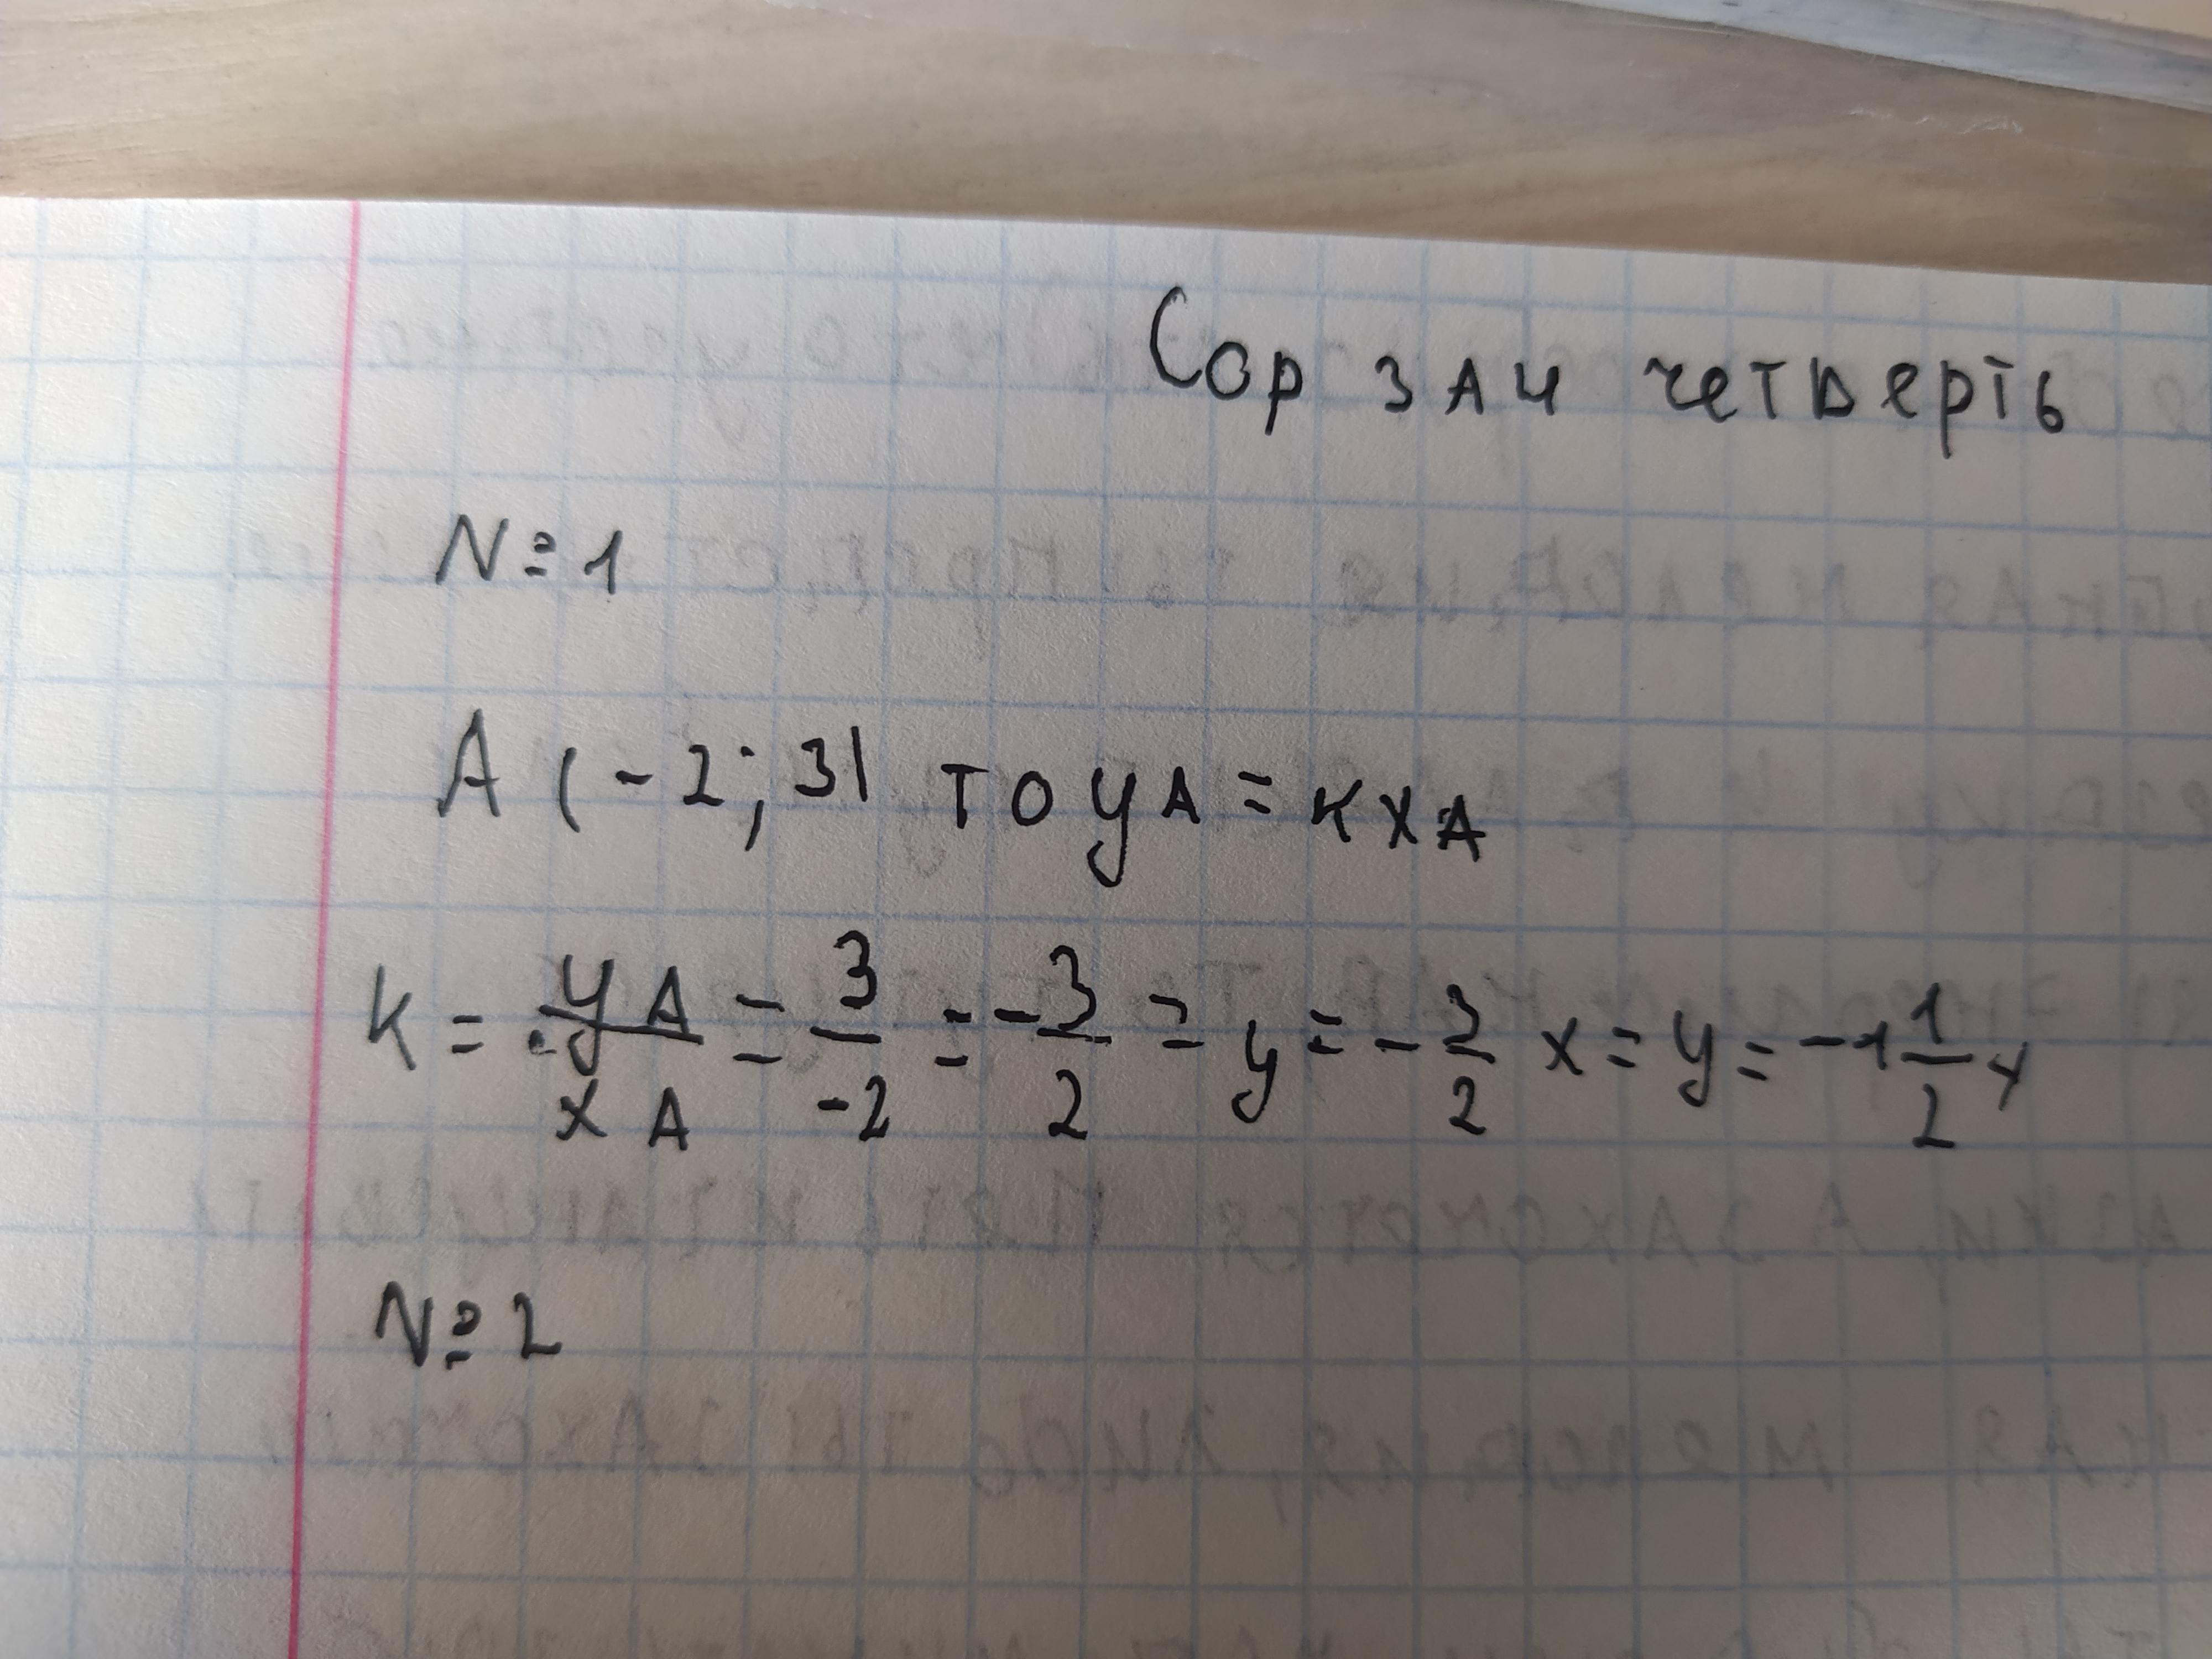 Сор за 4 четверть
№1
А (-2; 3) то yА = кxА
к = yА/xА = 3/-2 = -3/2 = y = -3/2 x = y = -1 1/2 x
№2